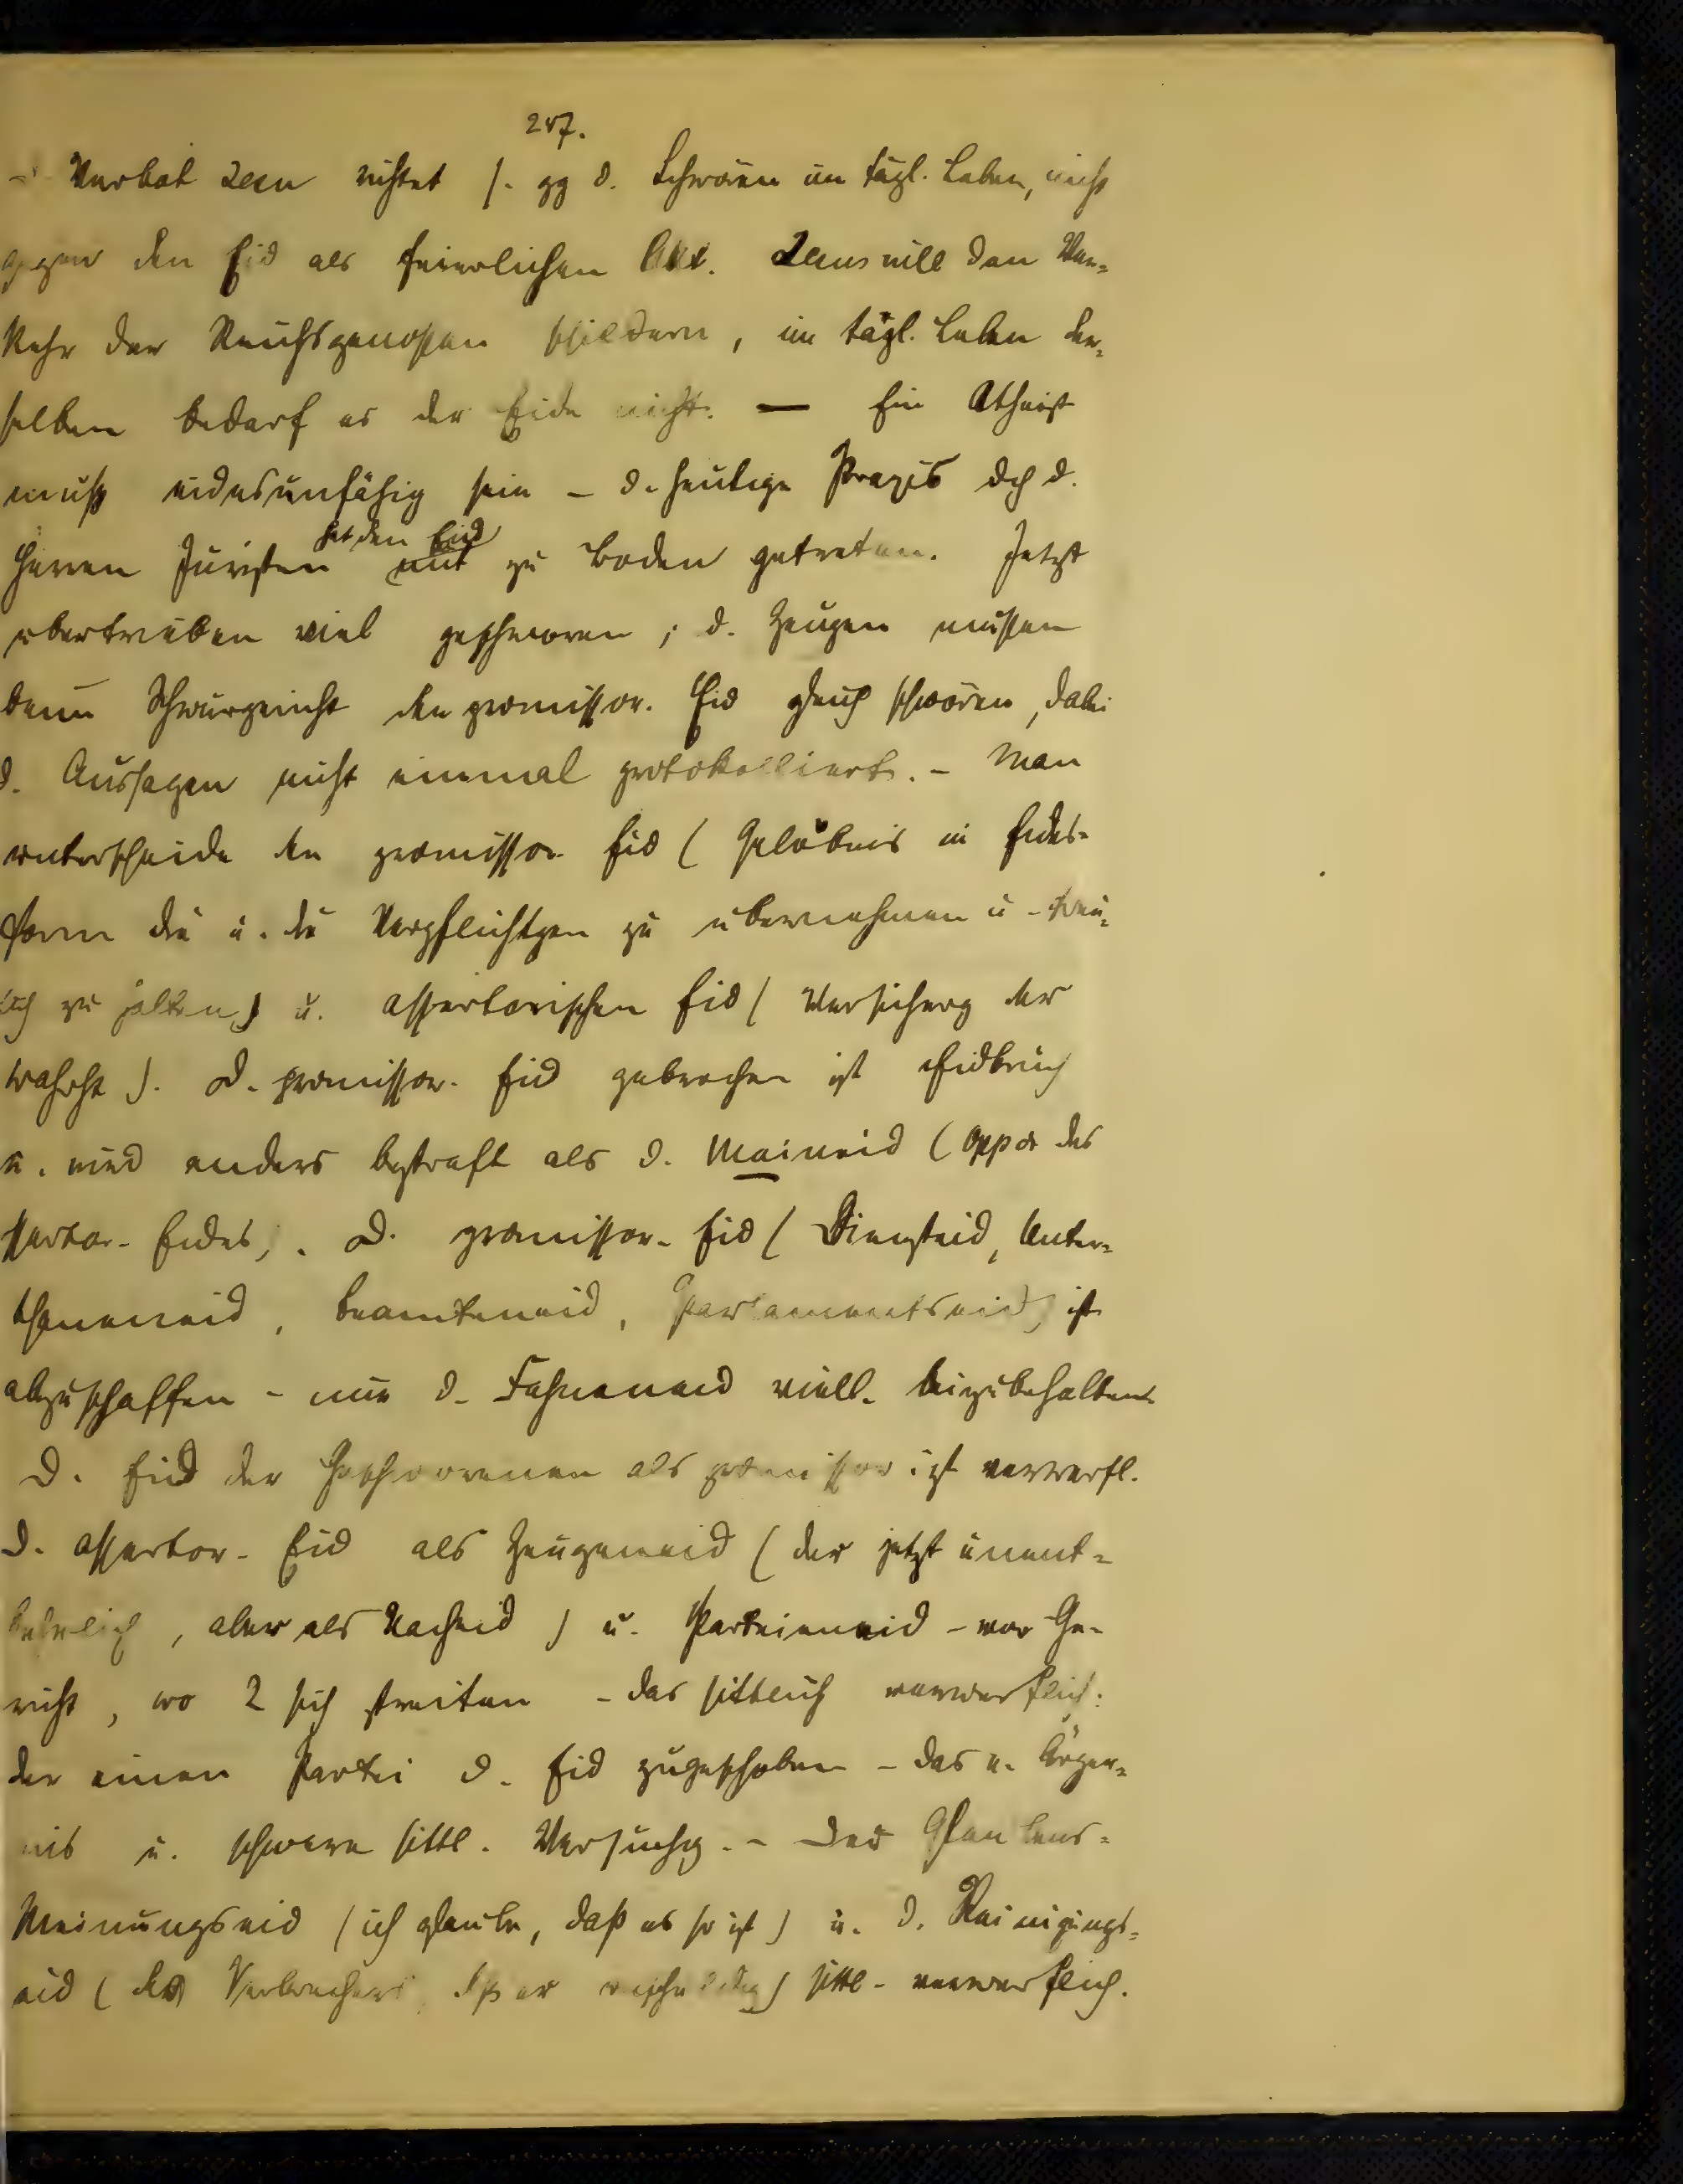 247.
Verbot Jesu richtet s. gg d. Schwören im tägl. Leben, nicht
gegen den Eid als feierlichen Akt. Jesus will den Ver-
kehr der Reichsgenossen schildern, im tägl. Leben der-
selben bedarf es der Eide nicht. — Ein Atheist
muß eidesunfähig sein – d. heutige Praxis dch d.
Herren Juristen hat den Eid zu Boden getreten. Jetzt
übertrieben viel geschworen; d. Zeugen müssen
beim Schwurgericht den promissor. Eid gleich schwören, dabei
d. Aussagen nicht einmal protokolliert. – Man
unterscheide den promissor. Eid (Gelöbnis in Eides-
form die u. die Verpflichtgen zu übernehmen u. treu-
lich zu halten) u. assertorischen Eid (Versicherg der
Wahrht). D. promissor. Eid gebrochen ist Eidbruch
u. wird anders bestraft als d. Maineid (Oppos des
assertor. Eides). D. promissor. Eid (Diensteid, Unter-
thaneneid, Beamteneid, Parlamentseid) ist
abzuschaffen – nur d. Fahneneid viell. beizubehalten.
D. Eid der Geschworenen als promissor ist verwerfl.
D. assertor. Eid als Zeugeneid (der jetzt unent-
behrlich, aber als Nacheid) u. Parteieneid – vor Ge-
richt, wo 2 sich streiten – das sittlich verwerflich:
der einen Partei d. Eid zugeschoben – das u. Ärger-
nis u. schwere sittl. Versuchg. – Der Glaubens-
Meinungseid (ich glaube, daß es so ist) u. d. Reinigungs-
eid (des Verbrechers, dß er unschuldig) sittl. verwerflich.